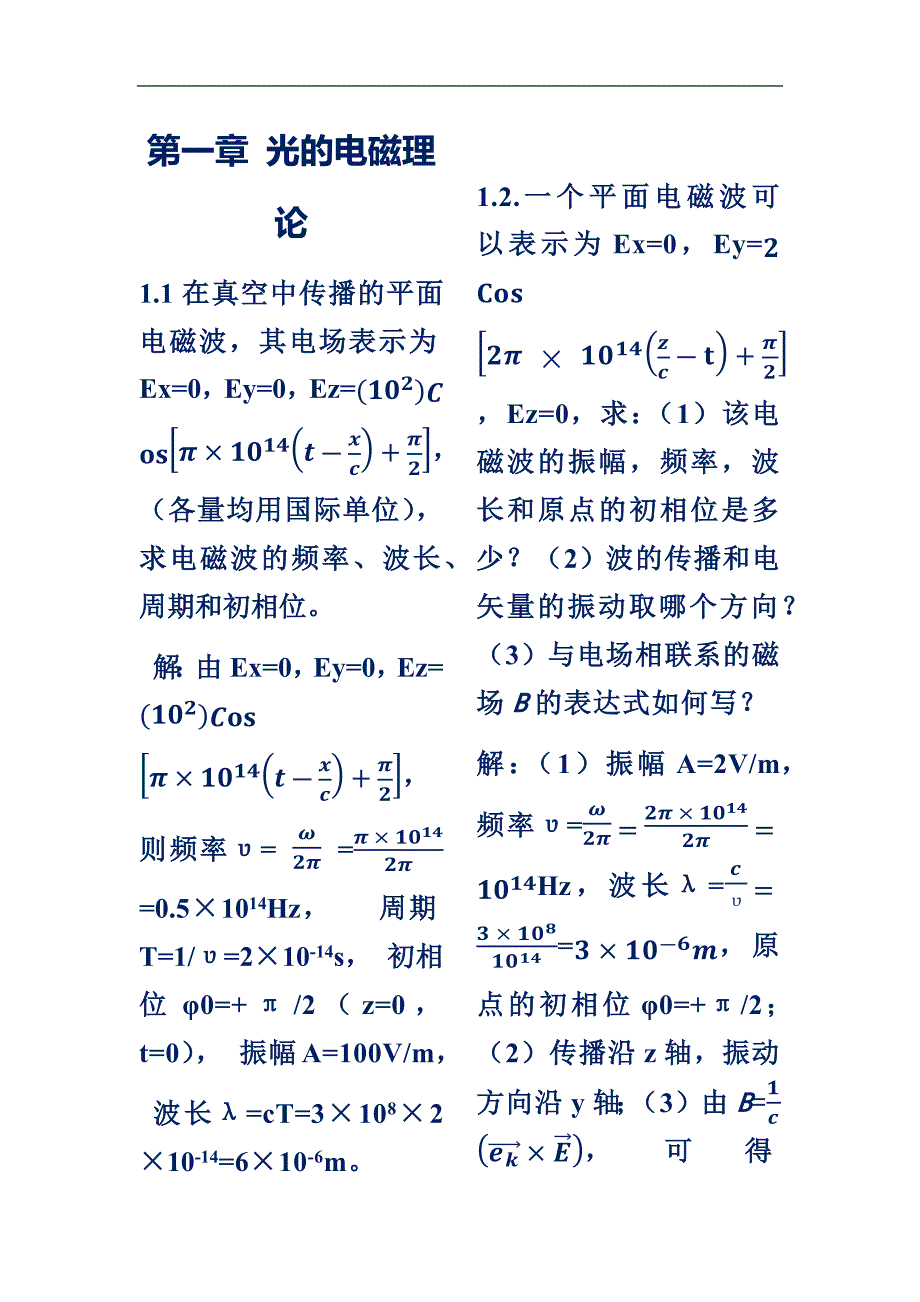 第一章 光的电磁理
论
1.1 在真空中传播的平面
电磁波，其电场表示为
Ex=0，Ey=0，Ez=(10²)C
os[π×10¹⁴(t−x/c)+π/2]，
（各量均用国际单位），
求电磁波的频率、波长、
周期和初相位。
解：由 Ex=0，Ey=0，Ez=
(10²)Cos
[π×10¹⁴(t−x/c)+π/2]，
则频率υ= ω/2π =π×10¹⁴/2π
=0.5×10¹⁴Hz， 周期
T=1/υ=2×10⁻¹⁴s， 初相
位 φ0=+π/2（z=0，
t=0）， 振幅A=100V/m，
波长λ=cT=3×10⁸×2
×10⁻¹⁴=6×10⁻⁶m。
1.2.一个平面电磁波可
以表示为 Ex=0，Ey=2
Cos
[2π × 10¹⁴(z/c−t)+π/2]
，Ez=0，求：（1）该电
磁波的振幅，频率，波
长和原点的初相位是多
少？（2）波的传播和电
矢量的振动取哪个方向？
（3）与电场相联系的磁
场B的表达式如何写？
解：（1）振幅 A=2V/m，
频率υ=ω/2π=2π×10¹⁴/2π=
10¹⁴Hz，波长λ=c/υ=
3×10⁸/10¹⁴=3×10⁻⁶m，原
点的初相位φ0=+π/2；
（2）传播沿z轴，振动
方向沿y轴；（3）由B=1/c
(e⃗k×E⃗)，可得